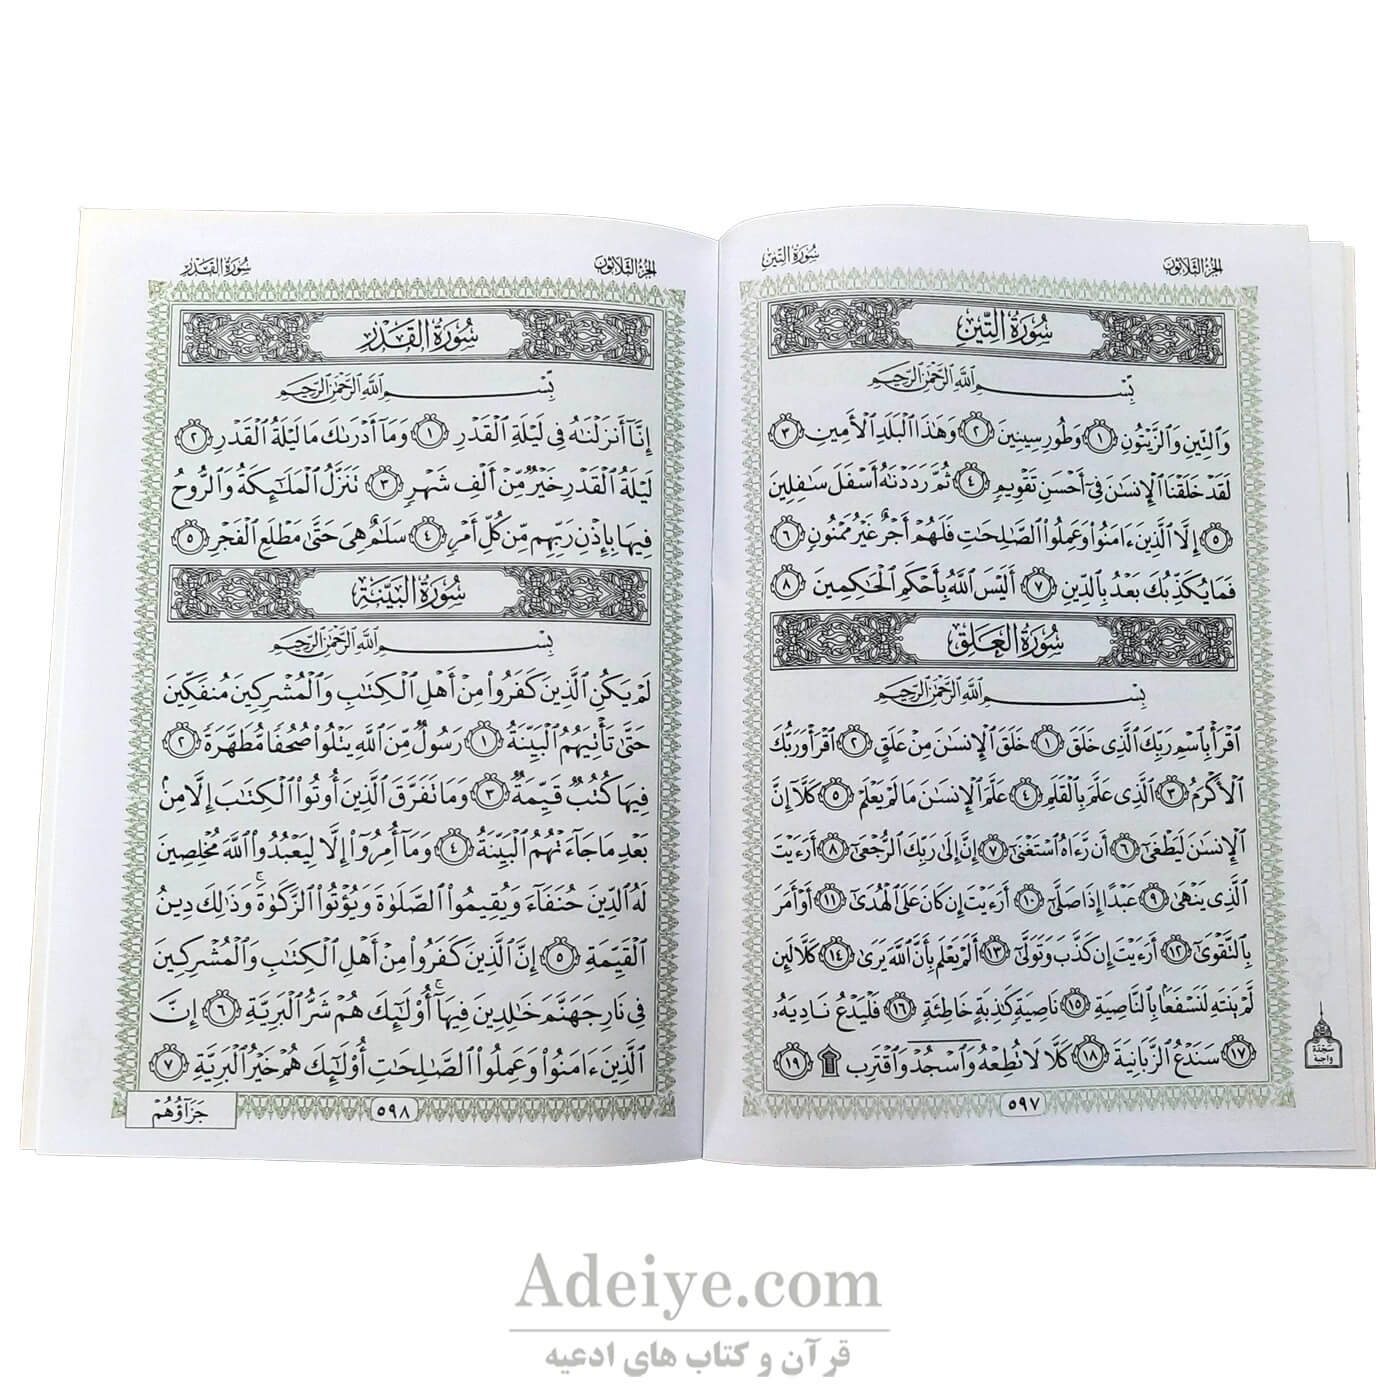 الجزء الثلاثون
سورة التين
سُورَةُ التِّينِ
بِسْمِ ٱللَّهِ ٱلرَّحْمَٰنِ ٱلرَّحِيمِ
وَٱلتِّينِ وَٱلزَّيْتُونِ ۝١ وَطُورِ سِينِينَ ۝٢ وَهَٰذَا ٱلْبَلَدِ ٱلْأَمِينِ ۝٣
لَقَدْ خَلَقْنَا ٱلْإِنسَٰنَ فِىٓ أَحْسَنِ تَقْوِيمٍ ۝٤ ثُمَّ رَدَدْنَٰهُ أَسْفَلَ سَٰفِلِينَ
۝٥ إِلَّا ٱلَّذِينَ ءَامَنُوا۟ وَعَمِلُوا۟ ٱلصَّٰلِحَٰتِ فَلَهُمْ أَجْرٌ غَيْرُ مَمْنُونٍ ۝٦
فَمَا يُكَذِّبُكَ بَعْدُ بِٱلدِّينِ ۝٧ أَلَيْسَ ٱللَّهُ بِأَحْكَمِ ٱلْحَٰكِمِينَ ۝٨
سُورَةُ العَلَقِ
بِسْمِ ٱللَّهِ ٱلرَّحْمَٰنِ ٱلرَّحِيمِ
ٱقْرَأْ بِٱسْمِ رَبِّكَ ٱلَّذِى خَلَقَ ۝١ خَلَقَ ٱلْإِنسَٰنَ مِنْ عَلَقٍ ۝٢ ٱقْرَأْ وَرَبُّكَ
ٱلْأَكْرَمُ ۝٣ ٱلَّذِى عَلَّمَ بِٱلْقَلَمِ ۝٤ عَلَّمَ ٱلْإِنسَٰنَ مَا لَمْ يَعْلَمْ ۝٥ كَلَّآ إِنَّ
ٱلْإِنسَٰنَ لَيَطْغَىٰٓ ۝٦ أَن رَّءَاهُ ٱسْتَغْنَىٰٓ ۝٧ إِنَّ إِلَىٰ رَبِّكَ ٱلرُّجْعَىٰٓ ۝٨ أَرَءَيْتَ
ٱلَّذِى يَنْهَىٰ ۝٩ عَبْدًا إِذَا صَلَّىٰٓ ۝١٠ أَرَءَيْتَ إِن كَانَ عَلَى ٱلْهُدَىٰٓ ۝١١ أَوْ أَمَرَ
بِٱلتَّقْوَىٰٓ ۝١٢ أَرَءَيْتَ إِن كَذَّبَ وَتَوَلَّىٰٓ ۝١٣ أَلَمْ يَعْلَم بِأَنَّ ٱللَّهَ يَرَىٰ ۝١٤ كَلَّا لَئِن
لَّمْ يَنتَهِ لَنَسْفَعًۢا بِٱلنَّاصِيَةِ ۝١٥ نَاصِيَةٍ كَٰذِبَةٍ خَاطِئَةٍ ۝١٦ فَلْيَدْعُ نَادِيَهُۥ
۝١٧ سَنَدْعُ ٱلزَّبَانِيَةَ ۝١٨ كَلَّا لَا تُطِعْهُ وَٱسْجُدْ وَٱقْتَرِب ۩ ۝١٩
سَجْدَة
واجبة
٥٩٧
الجزء الثلاثون
سورة القدر
سُورَةُ القَدْرِ
بِسْمِ ٱللَّهِ ٱلرَّحْمَٰنِ ٱلرَّحِيمِ
إِنَّآ أَنزَلْنَٰهُ فِى لَيْلَةِ ٱلْقَدْرِ ۝١ وَمَآ أَدْرَىٰكَ مَا لَيْلَةُ ٱلْقَدْرِ ۝٢
لَيْلَةُ ٱلْقَدْرِ خَيْرٌ مِّنْ أَلْفِ شَهْرٍ ۝٣ تَنَزَّلُ ٱلْمَلَٰٓئِكَةُ وَٱلرُّوحُ
فِيهَا بِإِذْنِ رَبِّهِم مِّن كُلِّ أَمْرٍ ۝٤ سَلَٰمٌ هِىَ حَتَّىٰ مَطْلَعِ ٱلْفَجْرِ ۝٥
سُورَةُ البَيِّنَةِ
بِسْمِ ٱللَّهِ ٱلرَّحْمَٰنِ ٱلرَّحِيمِ
لَمْ يَكُنِ ٱلَّذِينَ كَفَرُوا۟ مِنْ أَهْلِ ٱلْكِتَٰبِ وَٱلْمُشْرِكِينَ مُنفَكِّينَ
حَتَّىٰ تَأْتِيَهُمُ ٱلْبَيِّنَةُ ۝١ رَسُولٌ مِّنَ ٱللَّهِ يَتْلُوا۟ صُحُفًا مُّطَهَّرَةً ۝٢
فِيهَا كُتُبٌ قَيِّمَةٌ ۝٣ وَمَا تَفَرَّقَ ٱلَّذِينَ أُوتُوا۟ ٱلْكِتَٰبَ إِلَّا مِنۢ
بَعْدِ مَا جَآءَتْهُمُ ٱلْبَيِّنَةُ ۝٤ وَمَآ أُمِرُوٓا۟ إِلَّا لِيَعْبُدُوا۟ ٱللَّهَ مُخْلِصِينَ
لَهُ ٱلدِّينَ حُنَفَآءَ وَيُقِيمُوا۟ ٱلصَّلَوٰةَ وَيُؤْتُوا۟ ٱلزَّكَوٰةَ ۚ وَذَٰلِكَ دِينُ
ٱلْقَيِّمَةِ ۝٥ إِنَّ ٱلَّذِينَ كَفَرُوا۟ مِنْ أَهْلِ ٱلْكِتَٰبِ وَٱلْمُشْرِكِينَ
فِى نَارِ جَهَنَّمَ خَٰلِدِينَ فِيهَآ ۚ أُو۟لَٰٓئِكَ هُمْ شَرُّ ٱلْبَرِيَّةِ ۝٦ إِنَّ
ٱلَّذِينَ ءَامَنُوا۟ وَعَمِلُوا۟ ٱلصَّٰلِحَٰتِ أُو۟لَٰٓئِكَ هُمْ خَيْرُ ٱلْبَرِيَّةِ ۝٧
٥٩٨
جَزَآؤُهُمْ
Adeiye.com
قرآن و کتاب های ادعیه